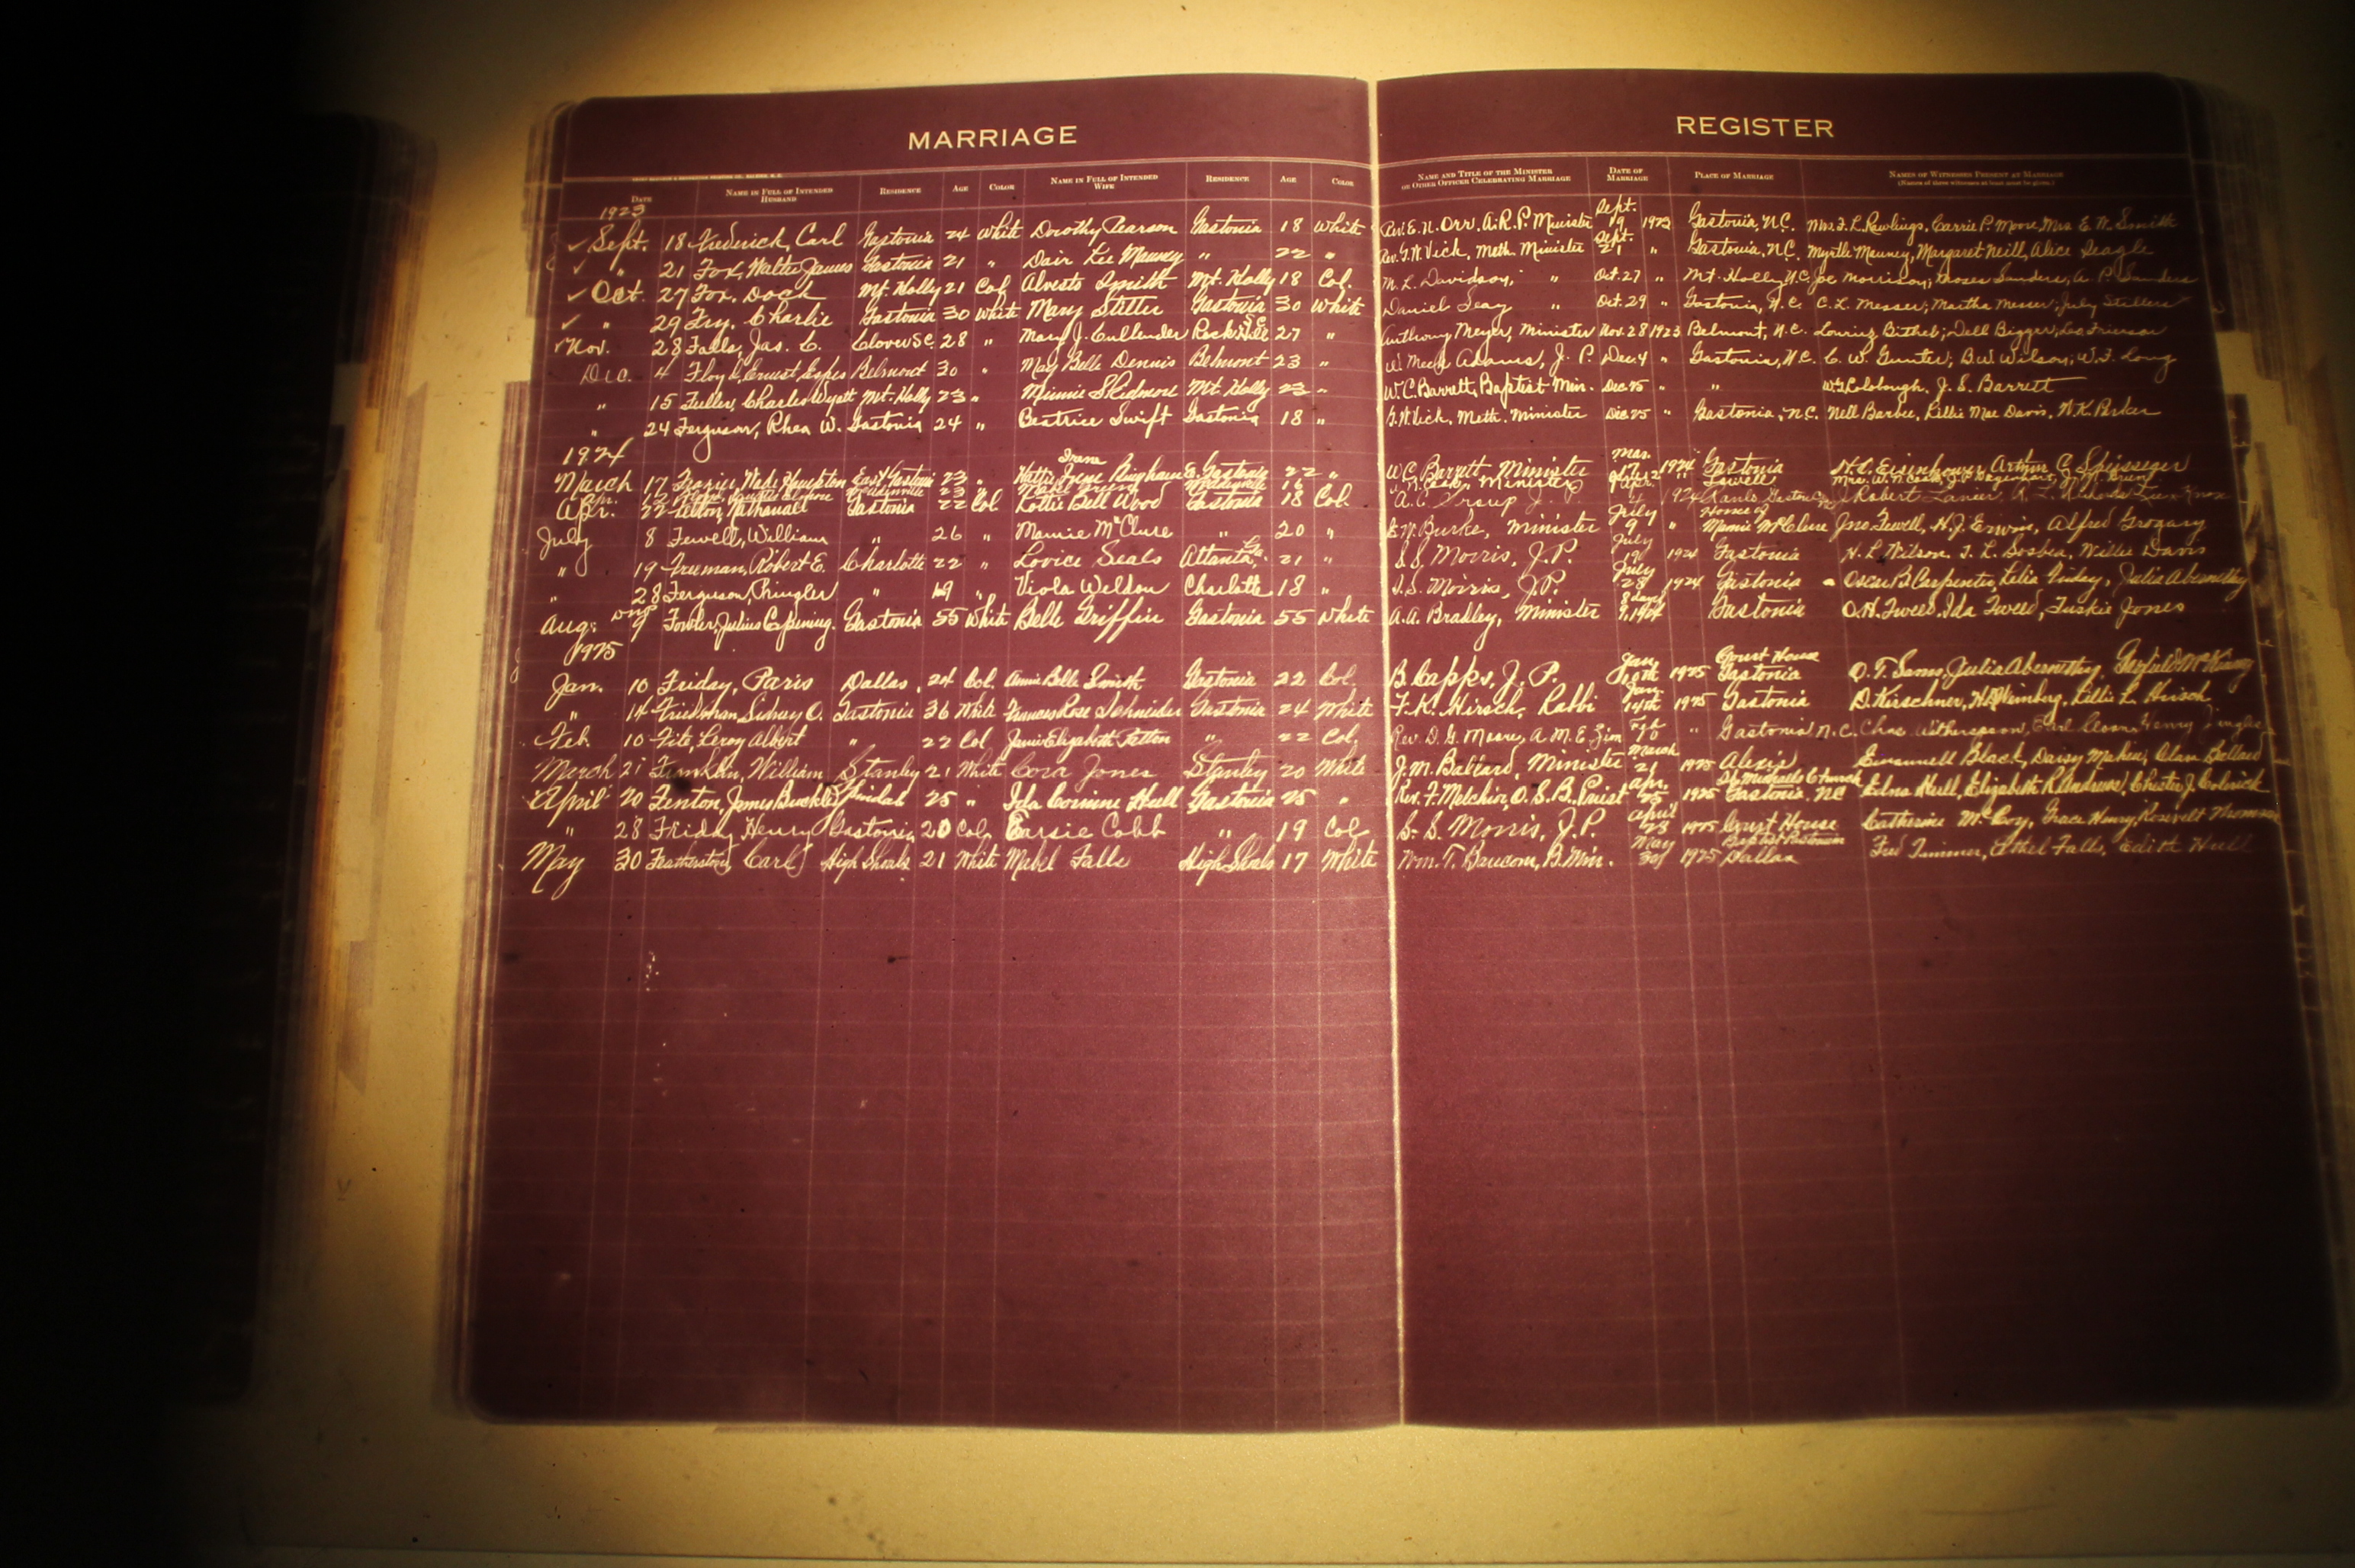 MARRIAGE REGISTER
DATE NAME IN FULL OF INTENDED HUSBAND RESIDENCE AGE COLOR NAME IN FULL OF INTENDED WIFE RESIDENCE AGE COLOR NAME AND TITLE OF THE MINISTER OR OTHER OFFICER CELEBRATING MARRIAGE DATE OF MARRIAGE PLACE OF MARRIAGE NAMES OF WITNESSES PRESENT AT MARRIAGE (Names of three witnesses at least must be given.)
1923
Sept. 18 Frederick, Carl Gastonia 24 White Dorothy Pearson Gastonia 18 White Rev. E. N. Orr. A.R.P. Minister Sept. 19 1923 Gastonia, N.C. Mrs. F. L. Rawlings, Carrie P. Moore, Mrs. E. W. Smith
" 21 Fox, Walter James Gastonia 21 " Dair Lee Mauney " 22 " Rev. G. W. Vick, Meth. Minister Sept. 21 " Gastonia, N.C. Myrtle Mauney, Margaret Neill, Alice Seagle
Oct. 27 Fox, Dock Mt. Holly 21 Col Alvesto Smith Mt. Holly 18 Col. M. L. Davidson, " " Oct. 27 " Mt. Holly, N.C. Joe Morrison; Moses Sanders, A. P. Sanders
" 29 Fry, Charlie Gastonia 30 White Mary Stiller Gastonia 30 White Daniel Seay " Oct. 29 " Gastonia, N.C. C. L. Messer; Martha Messer; July Stillers
Nov. 28 Falls, Jas. C. Clover SC 28 " Mary J. Cullender Rock Hill SC 27 " Anthony Meyer, Minister Nov. 28 1923 Belmont, N.C. Dell Bigger,
Dec. 4 Floyd, Ernest Belmont 30 " May Belle Dennis Belmont 23 " W. Meek Adams, J. P. Dec. 4 " Gastonia, N.C. C. W. Gunter; B. W. Wilson; W. F. Long
" 15 Fuller, Charles Wyatt Mt. Holly 23 " Minnie Skidmore Mt. Holly 23 " W. C. Barrett, Baptist Min. Dec 25 " " J. S. Barrett
" 24 Ferguson, Rhea W. Gastonia 24 " Beatrice Swift Gastonia 18 " G. W. Vick, Meth. Minister Dec 25 " Gastonia, N.C. Nell Barbee, Lillie Mae Davis, W. K. Parker
1924
March 17 Frazier, Wade Hampton East Gastonia 23 " Hattie Irene Bingham E. Gastonia 22 " W. C. Barrett, Minister Mar. 17 1924 Gastonia H. L. Eisenhower, Arthur C. Speissegger
Apr. 12 23 16 Minister Lowell Mrs. W. N. Cook,
Apr. 22 Felton, Nathanael Gastonia 22 Col Lottie Bell Wood Gastonia 18 Col. J. P. 1924 Robert Lanier,
July 8 Fewell, William " 26 " Mamie McClure " 20 " E. W. Burke, Minister July 9 " Home of Mamie McClure Jno. Fewell, H. J. Erwin, Alfred Grozary
" 19 Freeman, Robert E. Charlotte 22 " Lovice Seals Atlanta, Ga. 21 " S. S. Morris, J.P. July 19 1924 Gastonia H. L. Wilson, T. L. Sosbee, Willie Davis
" 28 Ferguson, Pringler " 19 " Viola Weldon Charlotte 18 " S. S. Morris, J.P. July 28 1924 Gastonia Oscar B. Carpenter, Lelia Friday, Julia Abernathy
Aug. 9 Fowler, Julius Gastonia 55 White Belle Griffin Gastonia 55 White A. A. Bradley, Minister Gastonia O. H. Tweed, Ida Tweed, Tuskie Jones
1925
Jan. 10 Friday, Paris Dallas 24 Col. Annie Belle Smith Gastonia 22 Col. B. Capps, J. P. Jan. 10th 1925 Court House Gastonia O. T. Sams, Julia Abernathy,
" 14 Friedman, Sidney O. Gastonia 36 White Frances Rose Schneider Gastonia 24 White F. K. Hirsch, Rabbi Jan. 14th 1925 Gastonia D. Kirschner, Weinberg, Lillie L. Hirsch
Feb. 10 Fite, Leroy Albert " 22 Col Janie Elizabeth " 22 Col. Rev. D. G. A. M. E. Zion Feb " Gastonia N.C. Chas Witherspoon, Henry
March 21 Franklin, William Stanley 21 White Cora Jones Stanley 20 White J. M. Ballard, Minister March 21 1925 Alexis Emanuell Black, Daisy Ballard
April 20 Fenton, James Spindale 25 " Ida Corinne Hull Gastonia 25 " Rev. F. Melchior, O. S. B. Priest Apr. 1925 St. Michaels Church Gastonia. NC Edna Hull, Elizabeth R. Andrews, Chester J.
" 28 Friday, Henry Gastonia 20 Col. Earsie Cobb " 19 Col S. S. Morris, J.P. April 28 1925 Court House Catherine McCoy, Grace Henry, Rosevelt
May 30 Featherston, Carl High Shoals 21 White Mabel Falls High Shoals 17 White Wm. T. Baucom, B. Min. May 30 1925 Baptist Dallas Fred Ethel Falls, Edith Hull